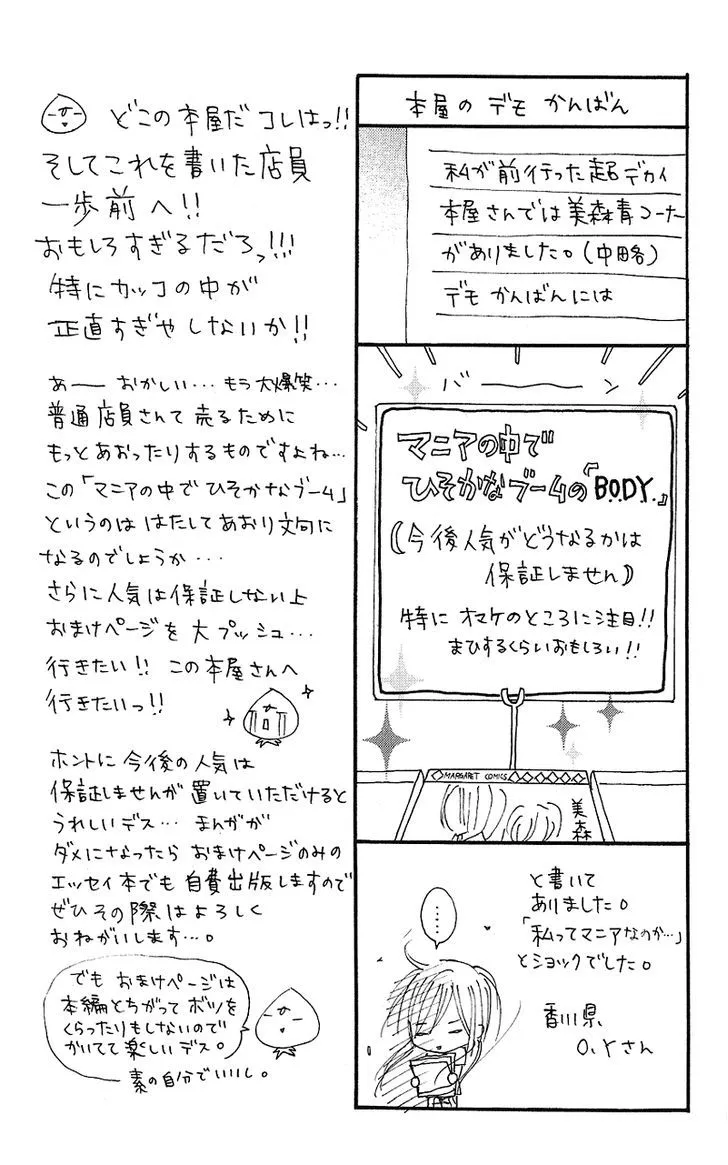 本屋の デモ かんばん
私が前行った超デカイ
本屋さんでは美森青コーナー
がありました。(中略)
デモ かんばんには
バーーン
マニアの中で
ひそかなブームの「BODY.」
(今後人気がどうなるかは
保証しません)
特に オマケのところに注目!!
まひするくらいおもしろい!!
MARGARET COMICS
美森
……
と書いて
ありました。
「私ってマニアなのか…」
とショックでした。
香川県
O.Yさん
どこの本屋だ コレはっ!!
そしてこれを書いた店員
一歩前へ!!
おもしろすぎるだろっ!!!
特にカッコの中が
正直すぎやしないか!!
あーー おかしい… もう大爆笑…
普通店員さんて 売るために
もっとあおったりするものですよね…
この「マニアの中で ひそかなブーム」
というのは はたしてあおり文句に
なるのでしょうか…
さらに人気は保証しない上
おまけページを 大プッシュ…
行きたい!! この本屋さんへ
行きたいっ!!
ホントに 今後の人気は
保証しませんが 置いていただけると
うれしいデス… まんがが
ダメになったら おまけページのみの
エッセイ本でも 自費出版しますので
ぜひその際はよろしく
おねがいします…。
でも おまけページは
本編とちがって ボツを
くらったりもしないので
かいてて楽しいデス。
素の自分でいいし。